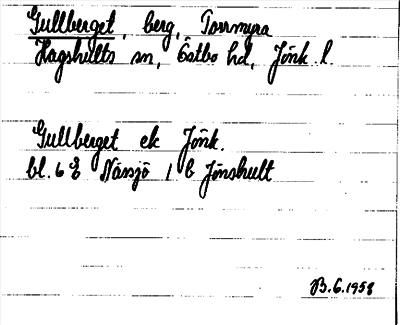 Gullberget, berg, Torrmyra
Hagshults sn, Östbo hd, Jönk. l.
Gullberget ek Jönk.
bl. 6 E Nässjö 1 b Jönshult
B.G. 1958